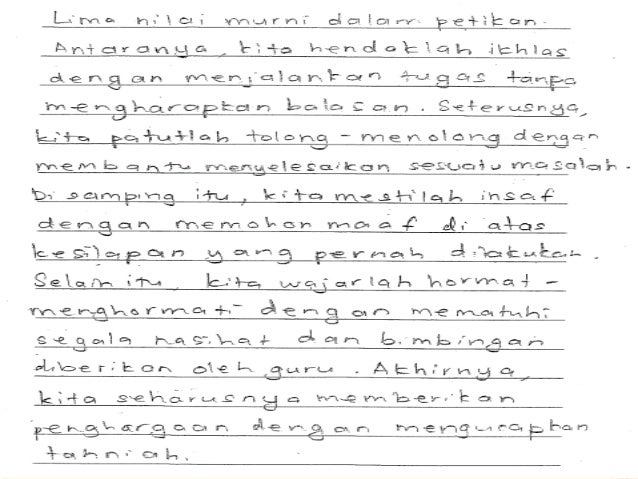 Lima nilai murni dalam petikan.
Antaranya, kita hendaklah ikhlas
dengan menjalankan tugas tanpa
mengharapkan balasan. Seterusnya,
kita patutlah tolong-menolong dengan
membantu menyelesaikan sesuatu masalah.
Di samping itu, kita mestilah insaf
dengan memohon maaf di atas
kesilapan yang pernah dilakukan.
Selain itu, kita wajarlah hormat-
menghormati dengan mematuhi
segala nasihat dan bimbingan
diberikan oleh guru. Akhirnya,
kita seharusnya memberikan
penghargaan dengan mengucapkan
tahniah.